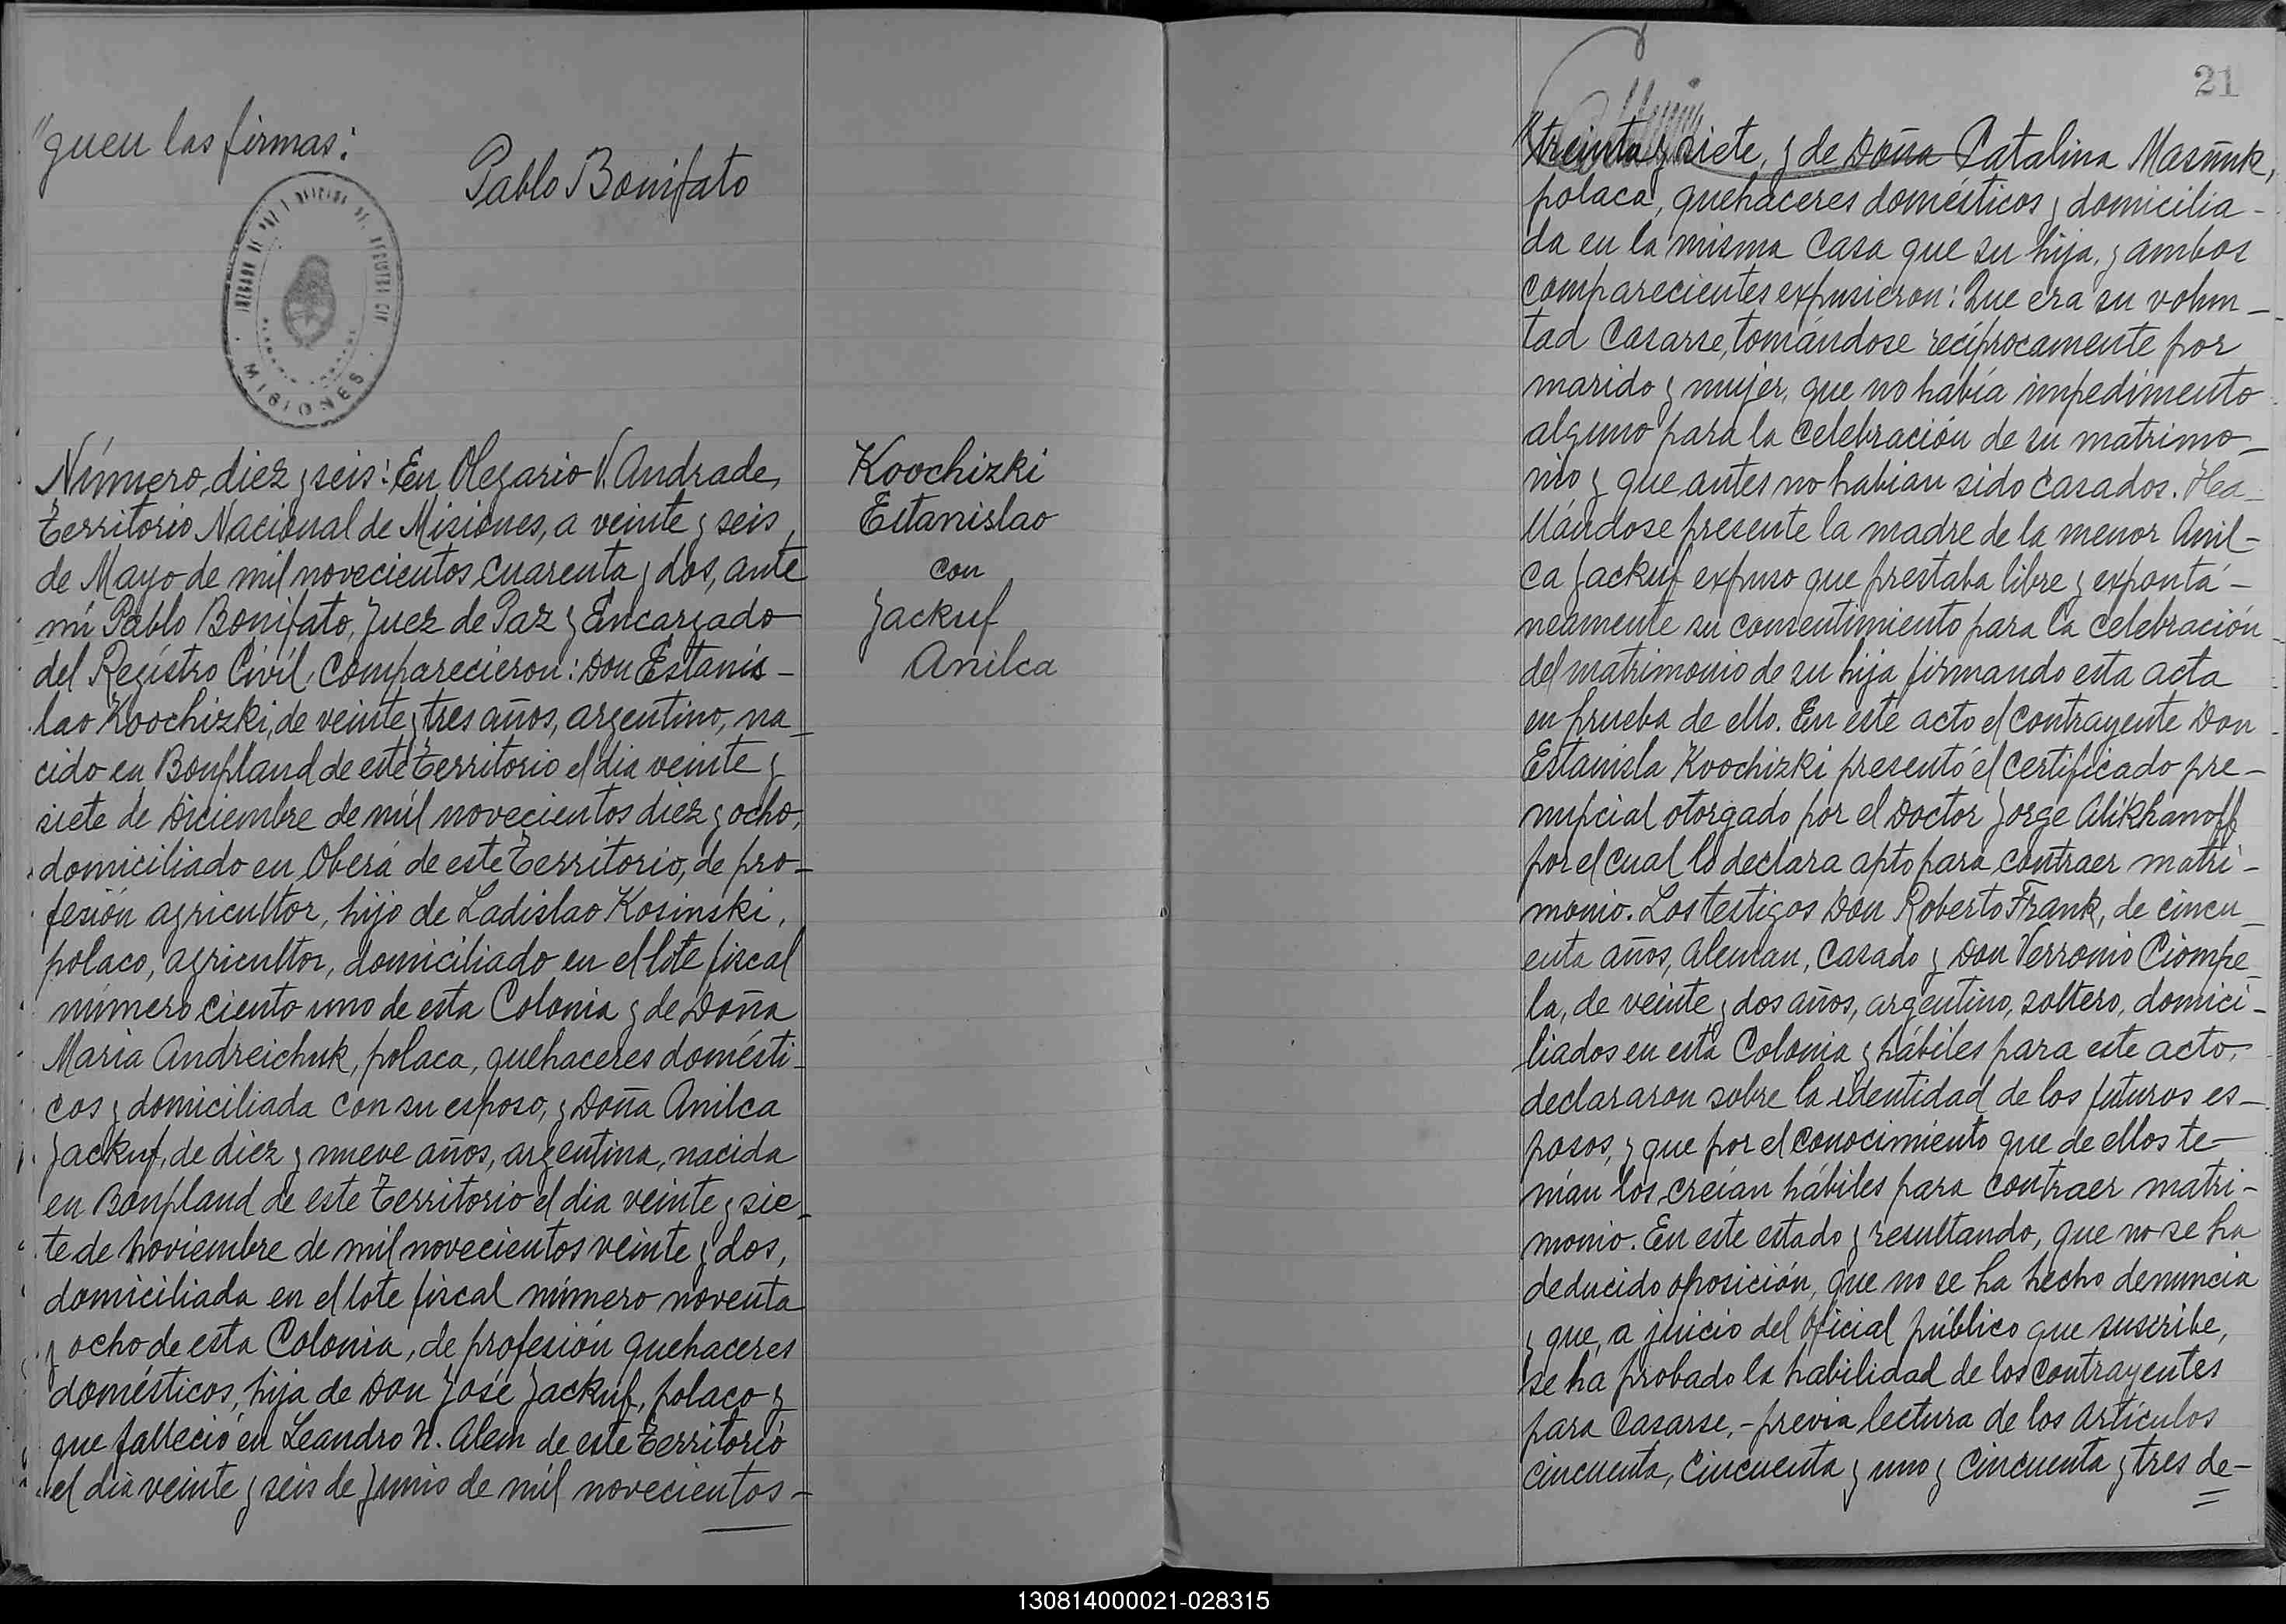 "guen las firmas:
Pablo Bonifato
MISIONES
Número, diez y seis: En Olegario V. Andrade,
Territorio Nacional de Misiones, a veinte y seis
de Mayo de mil novecientos cuarenta y dos, ante
mí Pablo Bonifato, Juez de Paz y Encargado
del Registro Civil, comparecieron: Don Estanis-
lao Koochizki, de veinte y tres años, argentino, na-
cido en Bonpland de este Territorio el dia veinte y
siete de Diciembre de mil novecientos diez y ocho,
domiciliado en Oberá de este Territorio, de pro-
fesión agricultor, hijo de Ladislao Kosinski,
polaco, agricultor, domiciliado en el lote fiscal
número ciento uno de esta Colonia y de Doña
Maria Andreichuk, polaca, quehaceres domésti-
cos y domiciliada con su esposo, y Doña Anilca
Jackuf, de diez y nueve años, argentina, nacida
en Bonpland de este Territorio el dia veinte y sie-
te de noviembre de mil novecientos veinte y dos,
domiciliada en el lote fiscal número noventa
y ocho de esta Colonia, de profesión quehaceres
domésticos, hija de Don José Jackuf, polaco y
que falleció en Leandro N. Alem de este Territorio
el dia veinte y seis de Junio de mil novecientos-
Koochizki
Estanislao
con
Jackuf
Anilca
21
"treinta y siete, y de Doña Catalina Masñuk,
polaca, quehaceres domésticos y domicilia-
da en la misma casa que su hija, y ambos
comparecientes expusieron: Que era su volun-
tad casarse, tomándose recíprocamente por
marido y mujer, que no había impedimento
alguno para la celebración de su matrimo-
nio y que antes no habian sido casados. Ha-
llándose presente la madre de la menor Anil-
ca Jackuf expuso que prestaba libre y expontá-
neamente su consentimiento para la celebración
del matrimonio de su hija firmando esta acta
en prueba de ello. En este acto el contrayente Don
Estanisla Koochizki presentó el certificado pre-
nupcial otorgado por el Doctor Jorge Alikhanoff
por el cual lo declara apto para contraer matri-
monio. Los testigos Don Roberto Frank, de cincu-
enta años, aleman, casado y Don Verronio Ciompe-
la, de veinte y dos años, argentino, soltero, domici-
liados en esta Colonia y hábiles para este acto,
declararon sobre la identidad de los futuros es-
posos, y que por el conocimiento que de ellos te-
nían los creían hábiles para contraer matri-
monio. En este estado y resultando, que no se ha
deducido oposición, que no se ha hecho denuncia
y que, a juicio del oficial público que suscribe,
se ha probado la habilidad de los contrayentes
para casarse,- previa lectura de los artículos
cincuenta, cincuenta y uno y cincuenta y tres de-
130814000021-028315